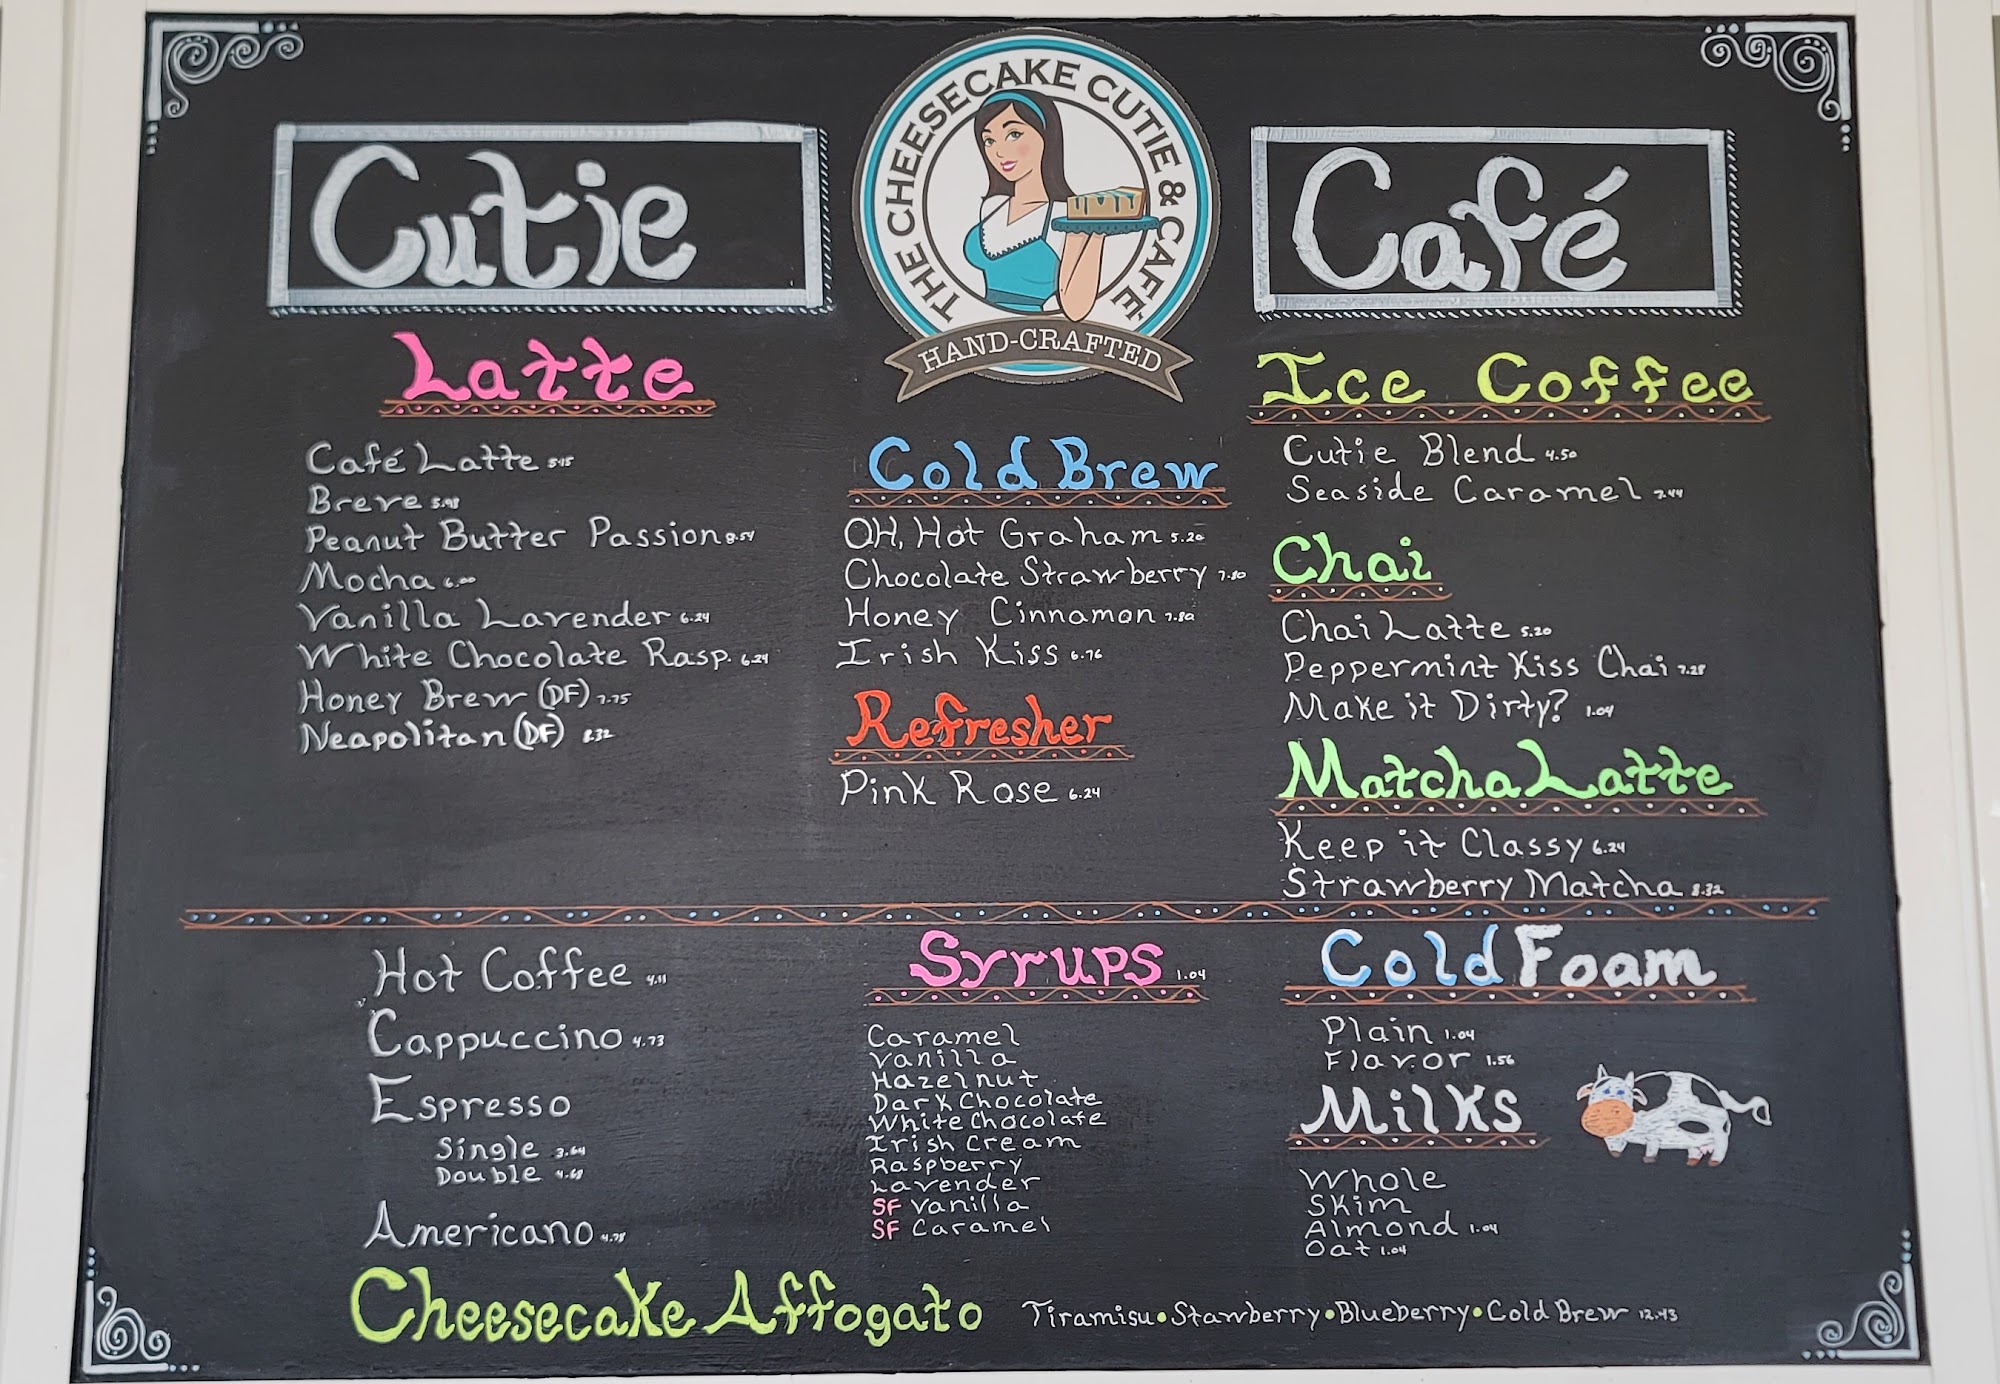 Cutie
THE CHEESECAKE CUTIE & CAFÉ
HAND-CRAFTED
Café
Latte
Café Latte 5.15
Breve 5.98
Peanut Butter Passion 8.54
Mocha 6.00
Vanilla Lavender 6.24
White Chocolate Rasp. 6.24
Honey Brew (DF) 7.75
Neapolitan (DF) 8.32
Cold Brew
OH, Hot Graham 5.20
Chocolate Strawberry 7.80
Honey Cinnamon 7.80
Irish Kiss 6.76
Refresher
Pink Rose 6.24
Ice Coffee
Cutie Blend 4.50
Seaside Caramel 7.44
Chai
Chai Latte 5.20
Peppermint Kiss Chai 7.28
Make it Dirty? 1.04
Matcha Latte
Keep it Classy 6.24
Strawberry Matcha 8.32
Hot Coffee 4.11
Cappuccino 4.73
Espresso
Single 3.64
Double 4.68
Americano 4.78
Syrups 1.04
Caramel
Vanilla
Hazelnut
Dark Chocolate
White Chocolate
Irish Cream
Raspberry
Lavender
SF Vanilla
SF Caramel
Cold Foam
Plain 1.04
Flavor 1.56
Milks
Whole
Skim
Almond 1.04
Oat 1.04
Cheesecake Affogato Tiramisu • Stawberry • Blueberry • Cold Brew 12.43